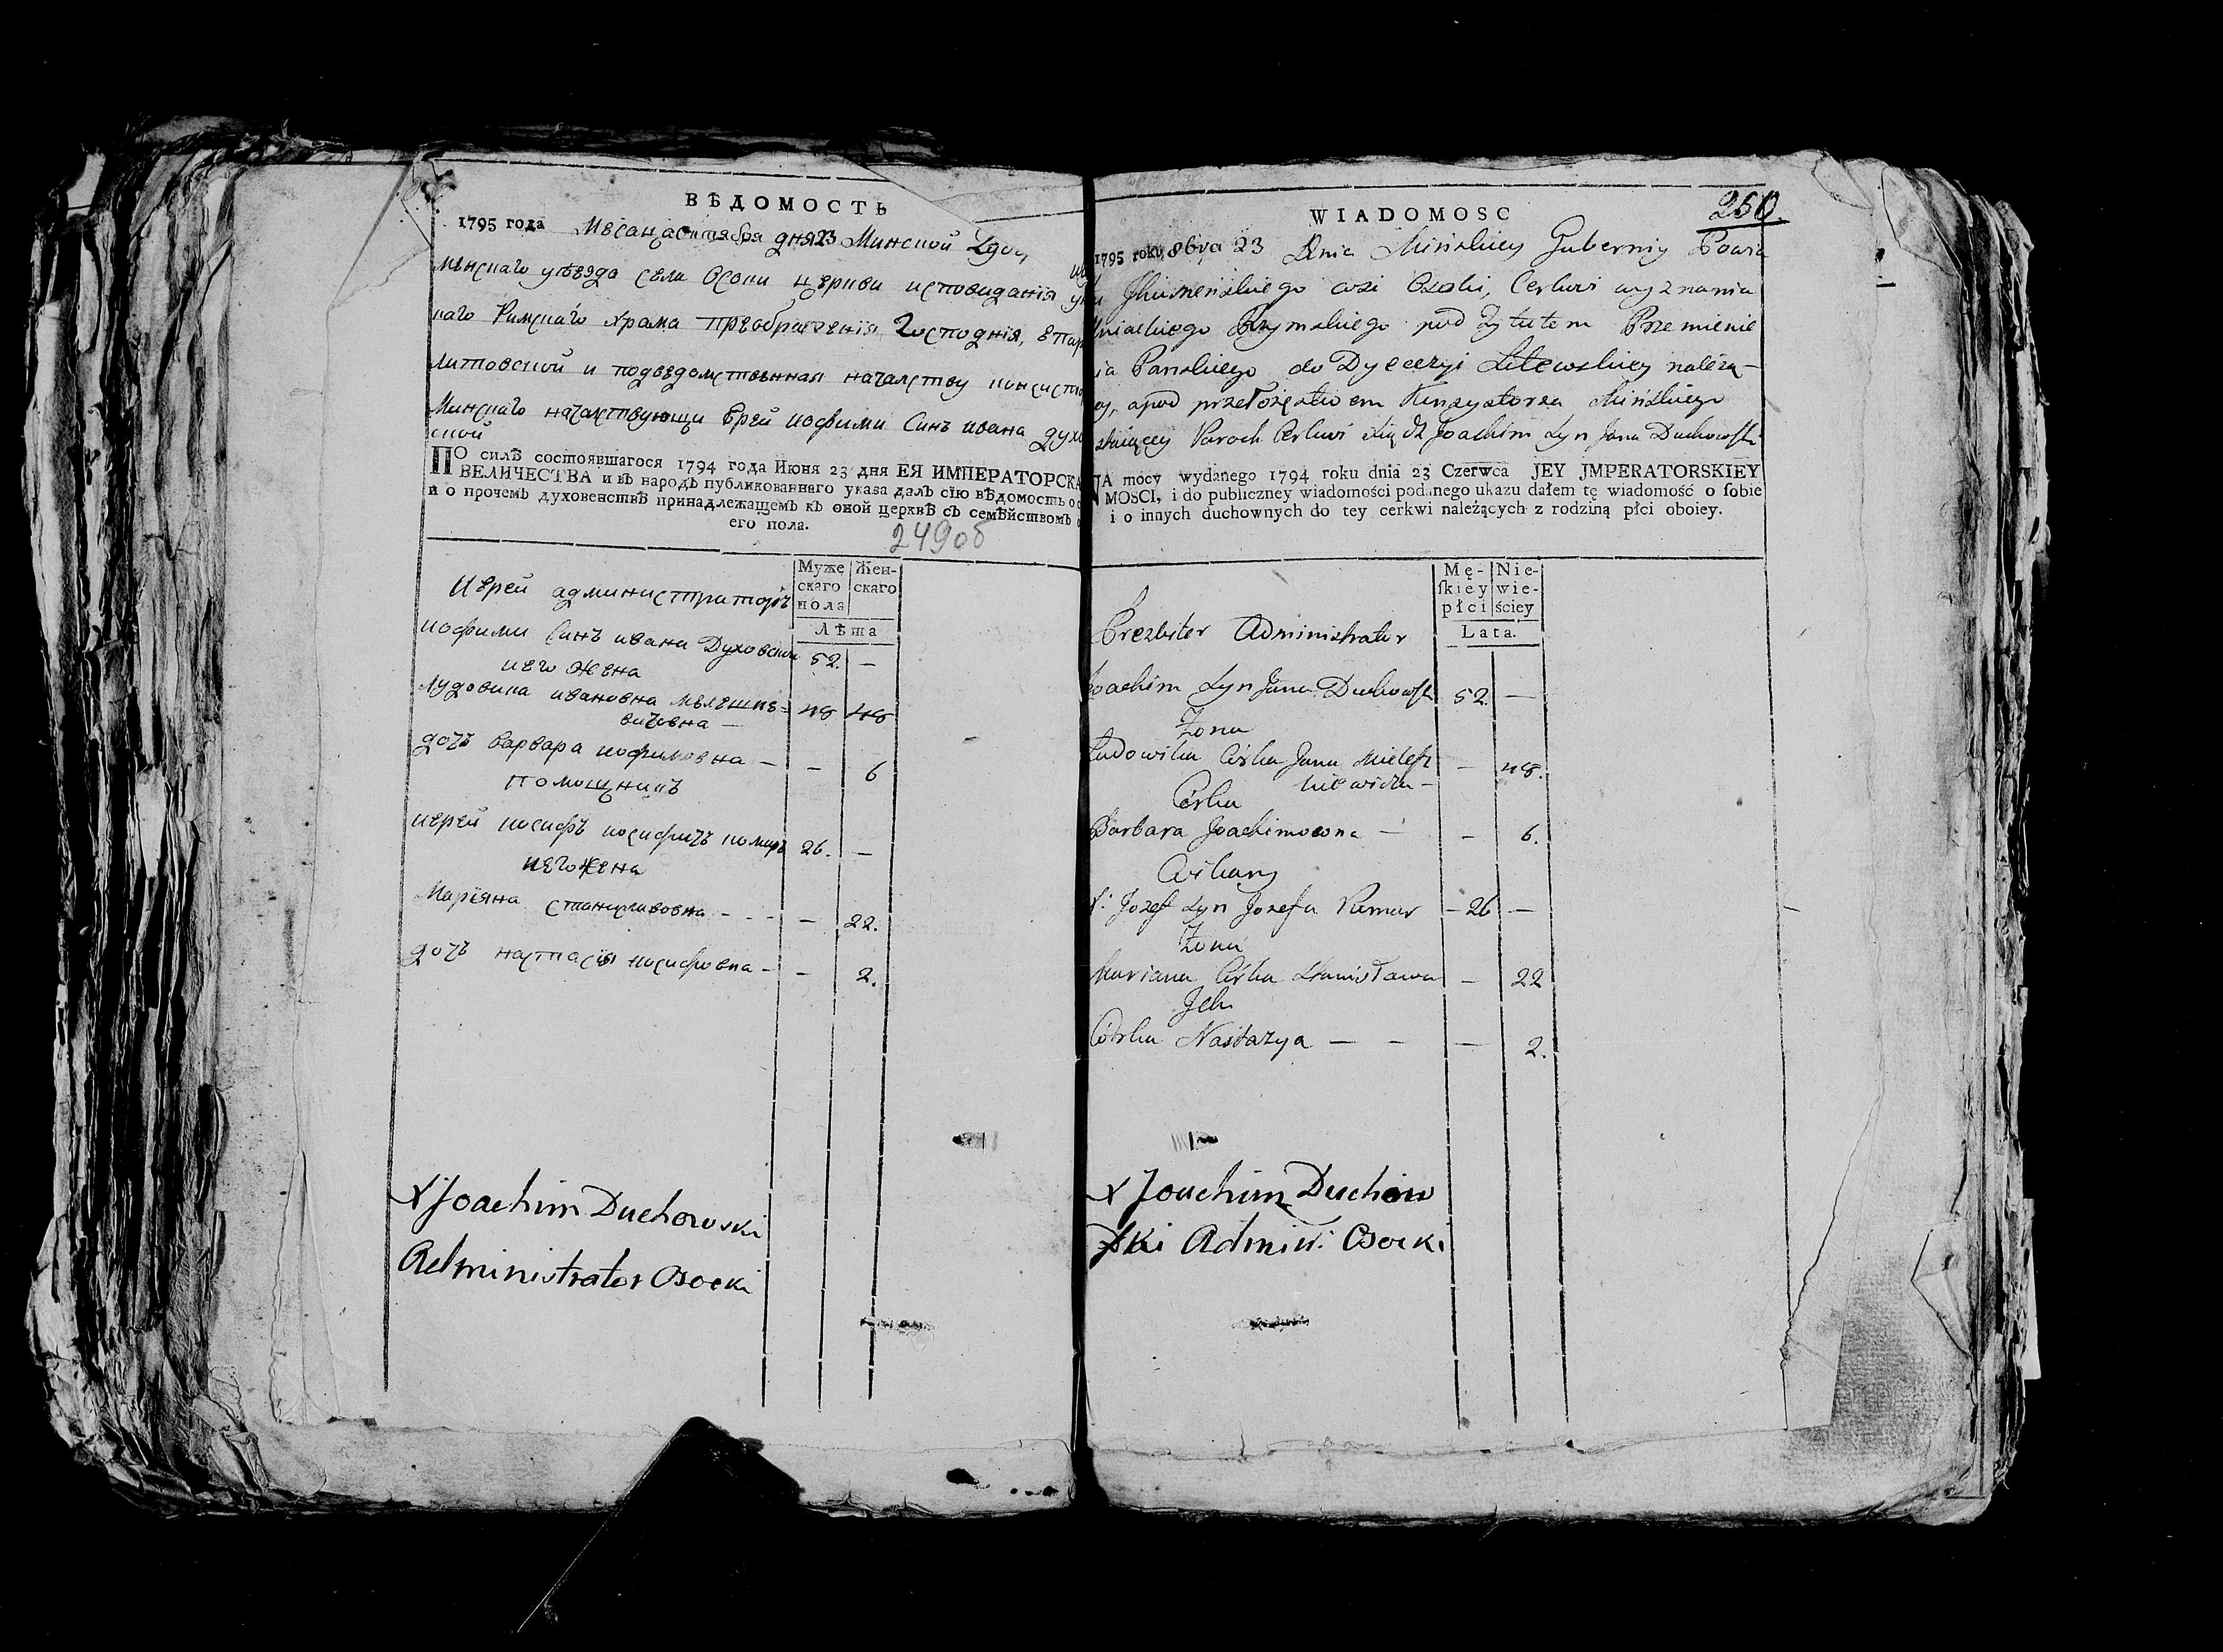 ВѢДОМОСТЬ
1795 года Месаца октября дня 23 Минской
менскаго уѣезда села Осоки церкви исповиданія
наго Римскаго Храма преображенія Господнія,
литовской и подведомственная началству
Минскаго началствующи Ерей иофими Синъ ивана
ской
ПО силѣ состоявшагося 1794 года Июня 23 дня ЕЯ ИМПЕРАТОРСКА
ВЕЛИЧЕСТВА и въ народъ публикованнаго указа далъ сїю вѣдомость о
и о прочемъ духовенствѣ принадлежащемъ къ оной церквѣ съ семѣйствомъ
его пола.
249об
Муже Жен-
скаго скаго
пола
Лѣта
Иерей администраторъ
иофими Синъ ивана Духовски 52. —
иего жена
лудовика ивановна мелешке=
вичовна — 48 48
дочъ варвара иофимовна — — 6
помощникъ
иерей иосифъ иосифичъ 26. —
иего жена
Маріяна станиславовна - - - — 22.
дочъ настасія иосифовна - - 2.
X Joachim Duchowski
Administrator Osocki
WIADOMOSC
250
1795 roku 8bra 23 Dnia Mińskiey Gubernij Powia
Jhumeńskiego wsi Osoki, Cerkwi wyznania
Uniackiego Rzymskiego pod Tytułem Przemienie
ia Panskiego do Dyecezyi Litewskiey należą-
ey, a pod przełożęstwem Konsystorza Mińskiego
Paroch Cerkwi Xiądz Joachim Syn Jana Duchowski
NA mocy wydanego 1794 roku dnia 23 Czerwca JEY JMPERATORSKIEY
MOSCI, i do publiczney wiadomości podanego ukazu dałem tę wiadomość o sobie
i o innych duchownych do tey cerkwi należących z rodziną płci oboiey.
Mę- Nie-
skiey wie-
płci ściey
Lata.
Prezbiter Administrator
Joachim Syn Jana Duchowski 52. —
Żona
Ludowika Córka Jana Mielesz
kiewicza — — 48.
Córka
Barbara Joachimowna — — 6.
Wikary
X: Jozef Syn Jozefa — 26 —
Żona
Mariana Córka Stanisława — 22
Jch
Córka Nastazya — — — 2.
X Joachim Duchow
ski Admin: Osocki